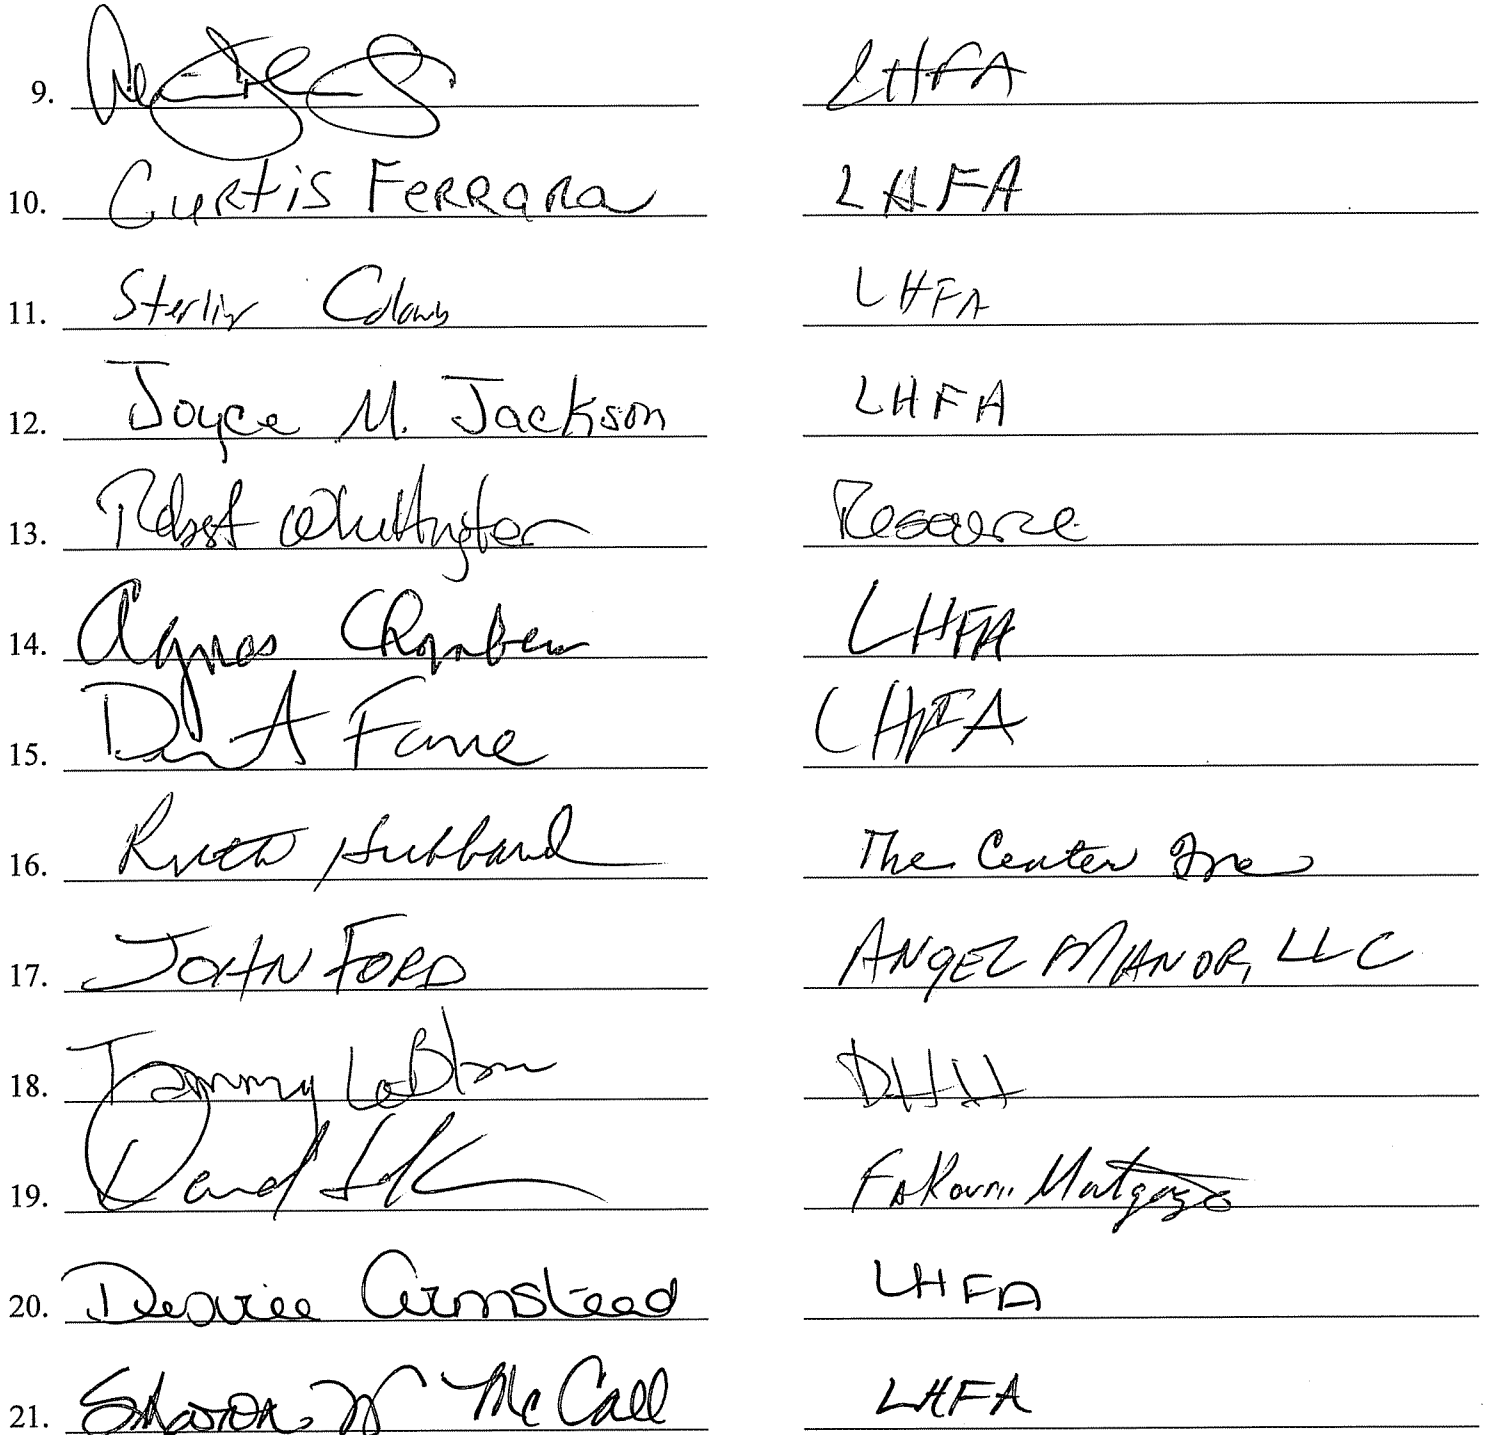 9. LHFA
10. Curtis Ferrara LHFA
11. Sterlin Colomb LHFA
12. Joyce M. Jackson LHFA
13. Robert Whittington Resource
14. Agnes Chambers LHFA
15. LHFA
16. Ruth Hubbard The Center Inc
17. JOHN FORD ANGEL MANOR, LLC
18. Tammy LeBlanc DHH
19. David Mortgage
20. Desiree Armstead LHFA
21. Sharon W McCall LHFA